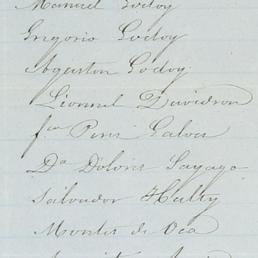 Manuel Godoy
Gregorio Godoy
Agustin Godoy
Lionnel Davidson
fco Peris Galves
Da Dolores Sayago
Salvador Hatty
Montes de Oca